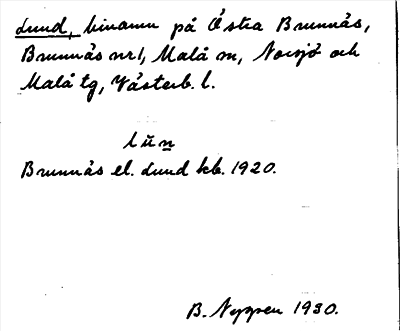 Lund, binamn på Östra Brunnås,
Brunnås nr 1, Malå sn, Norsjö och
Malå tg, Västerb. l.
lūn
Brunnås el. Lund kb. 1920.
B. Nyppen 1930.